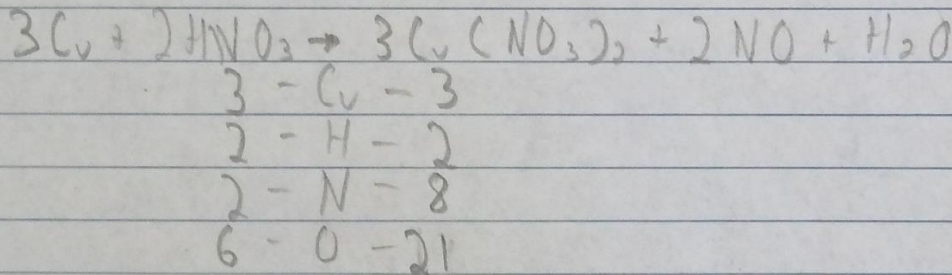 3Cu + 2HNO₃ → 3Cu(NO₃)₂ + 2NO + H₂O
3 - Cu - 3
2 - H - 2
2 - N - 8
6 - O - 21